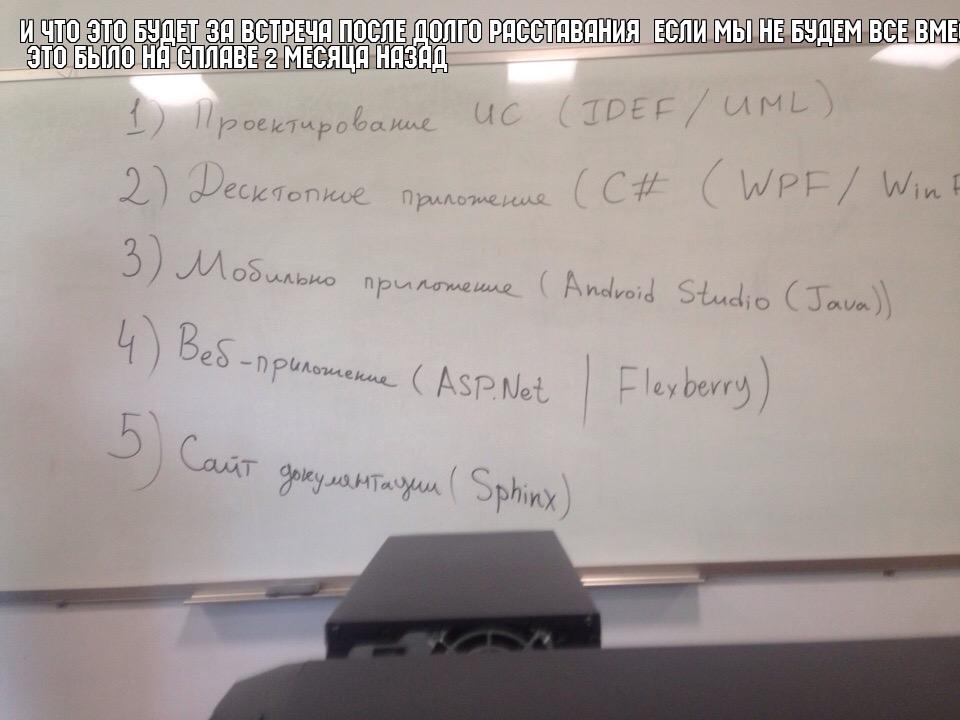 И ЧТО ЭТО БУДЕТ ЗА ВСТРЕЧА ПОСЛЕ ДОЛГО РАССТАВАНИЯ ЕСЛИ МЫ НЕ БУДЕМ ВСЕ
ЭТО БЫЛО НА СПЛАВЕ 2 МЕСЯЦА НАЗАД
1) Проектирование ИС (IDEF/UML)
2) Десктопное приложение (C# (WPF/ Win
3) Мобильно приложение (Android Studio (Java))
4) Веб-приложение (ASP.Net | Flexberry)
5) Сайт документации (Sphinx)